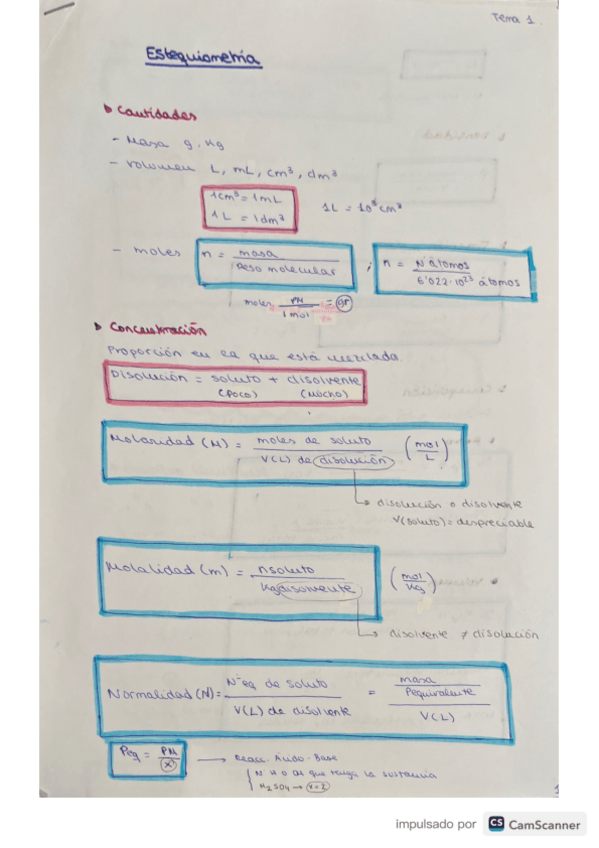 Tema 1.
Estequiometría
Cantidades
- Masa g, Kg
- Volumen L, mL, cm³, dm³
1cm³ = 1mL
1L = 1dm³
1L = 10³cm³
- moles n = masa / Peso molecular ; n = Nº átomos / 6'022·10²³ átomos
moles · PM / 1 mol = gr
Concentración
Proporción en la que está mezclada.
Disolución = soluto + disolvente
(poco) (mucho)
Molaridad (M) = moles de soluto / V(L) de disolución (mol/L)
disolución o disolvente
V(soluto) = despreciable
Molalidad (m) = nsoluto / Kg disolvente (mol/Kg)
disolvente ≠ disolución
Normalidad (N) = Nº eq de soluto / V(L) de disolvente = masa / Pequivalente / V(L)
Peq = PM / x → Reacc. Ácido-Base
H u OH que tenga la sustancia
H₂SO4 → x=2
impulsado por CS CamScanner